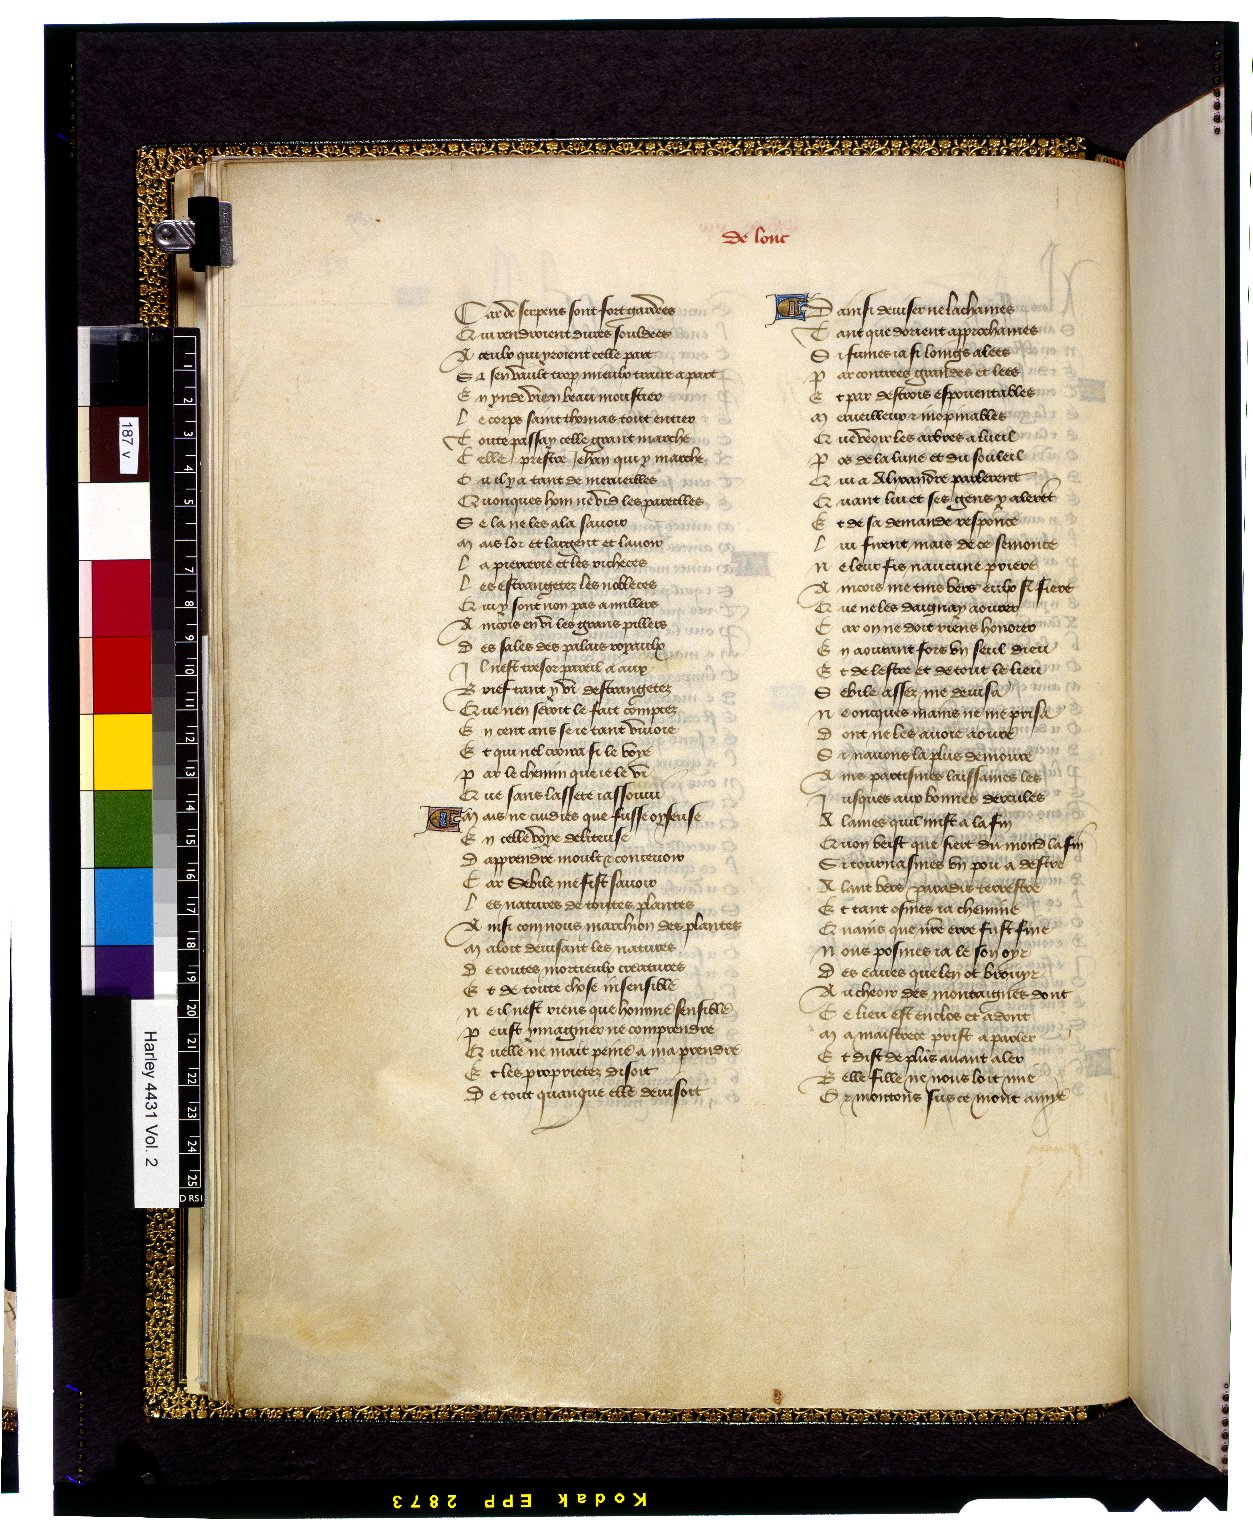 de lonc
Car de serpens sont fort gardees
Qui rendroient dures souldees
A ceulx qui yroient celle part
Si sen vault trop mieulx traire a part
En ynde vi en beau moustier
Le corps saint thomas tout entier
Toute passay celle grant marche
Celle prestre Jehan qui y marche
Ou il y a tant de merueilles
Quonques hom ne vid les pareilles
Se la ne les ala sauoir
Mais lor et largent et lauoir
La pierrerie et les richeces
Les estrangetez les nobleces
Qui y sont non pas a milliers
Aincois en vi les grans pillers
Des sales des palais royaulx
Il nest tresor pareil a aux
Brief tant y vi destrangetez
Que nen seroit le fait comptez
En cent ans se ie tant viuoie
Et qui nel croira si le voye
Par le chemin que ie le vi
Que sans lassete iassouui
Mais ne cuidies que fusse oyseuse
En celle voye deliteuse
Dapprendre moult et conceuoir
Car Sebile me fist sauoir
Les natures de toutes plantes
Ainsi com nous marchion des plantes
Maloit deuisant les natures
De toutes mortieulx creatures
Et de toute chose insensible
Ne il nest riens que homme sensible
Peust ymaginer ne comprendre
Quelle ne mait peine a maprendre
Et les proprietez disoit
De tout quanque elle deuisoit
Dainsi deuiser ne lachames
Tant que dorient approchames
Si fumes ia si loings alees
Par contrees grandes et lees
Et par destrois espouentables
Merueilleux et inopinables
Que veoir les arbres a lueil
Pos de la lune et du souleil
Qui a Alixandre parlerent
Quant lui et ses gens y alerent
Et de sa demande responce
Lui firent mais de ce semonce
Ne leur fis naucune priere
Aincois me tins vers eulx si fiere
Que ne les daignay aourer
Car on ne doit riens honorer
En aourant fors vn seul dieu
Et de lestre et de tout le lieu
Sebile assez me deuisa
Ne oncques mains ne me prisa
Dont ne les auoie aoure
Si nauons la plus demoure
Ains partismes laissames les
Jusques aux bonnes dercules
Alames quil mist a la fin
Quon veist que fiert du mond la fin
Si tournasmes vn pou a destre
Alant vers paradis terrestre
Et tant osmes ia chemine
Quains que nre erre fust fine
Nous posmes ia le son oyr
Des eaues que len ot brouyr
Au cheoir des montaignes dont
Ce lieu est enclos et adont
Ma maistrece prist a parler
Et dist de plus auant aler
Belle fille ne nous loit mie
Or montons sus ce mont amye
187 v
Harley 4431 Vol. 2
1
2
3
4
5
7
8
9
10
11
12
13
14
15
16
17
18
19
20
21
22
23
24
25
D RSI
Kodak EPP 2873